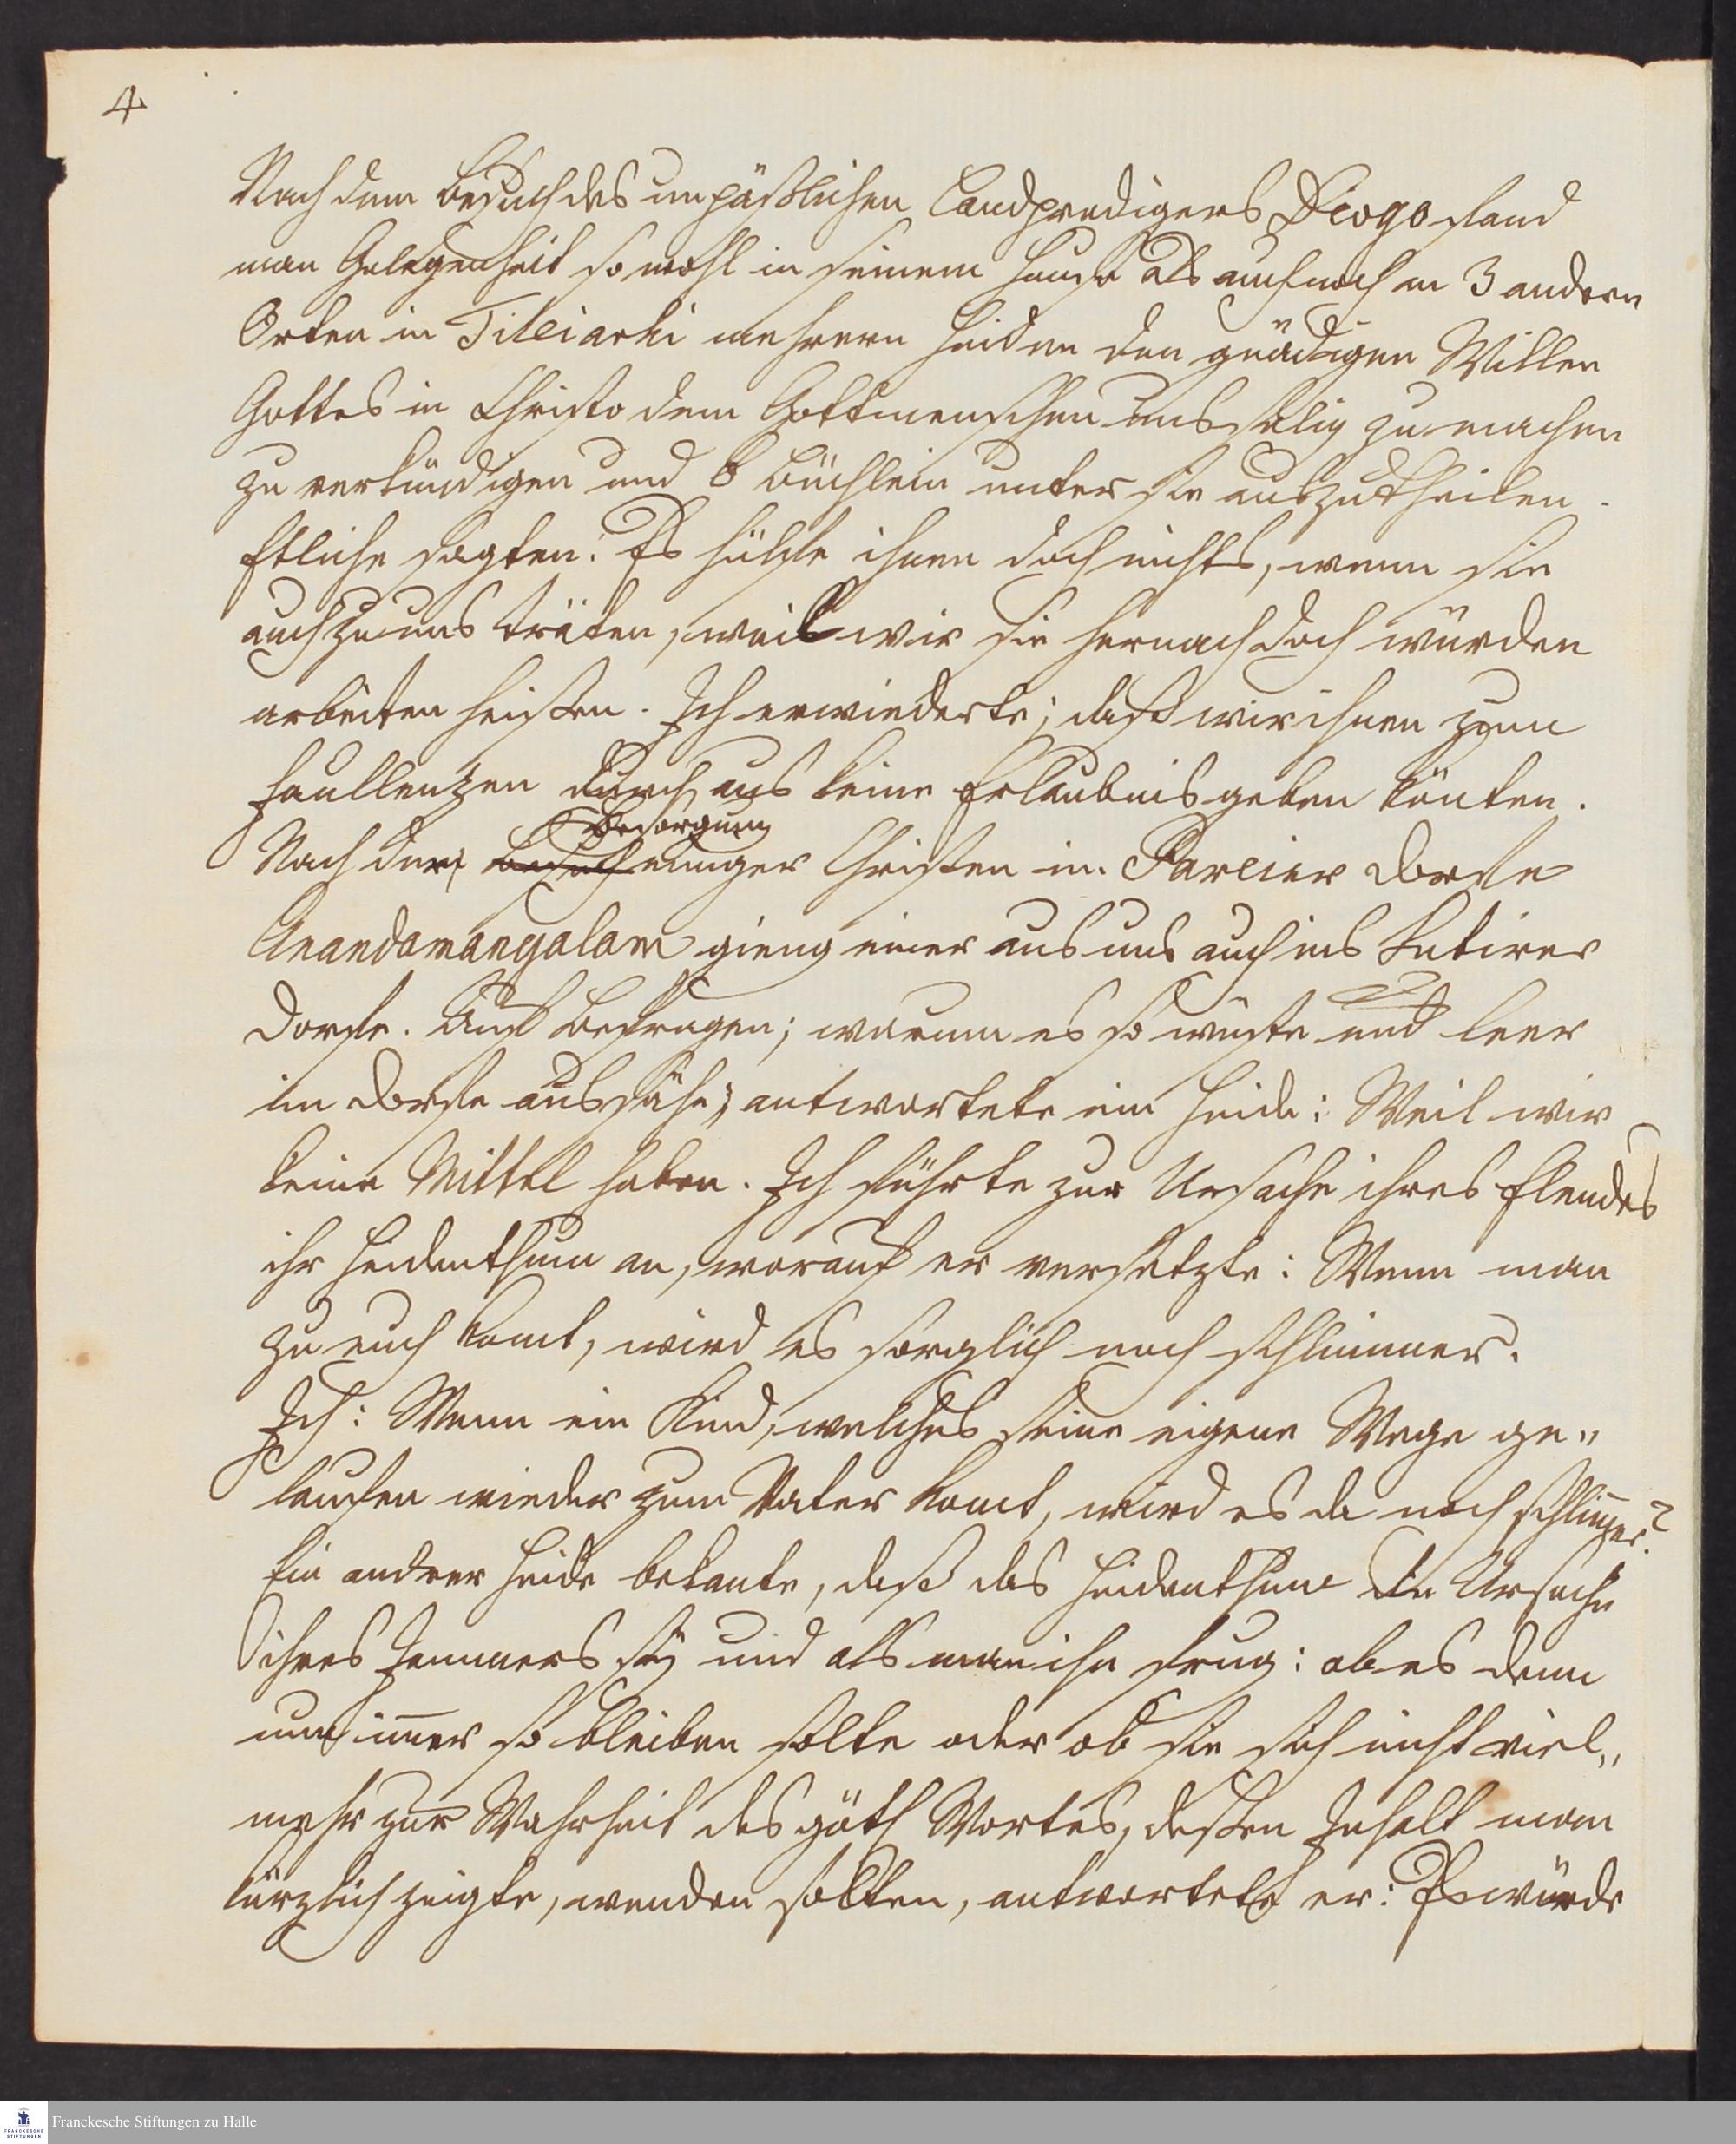 4
Nach dem Besuch des unpäßlichen Landpredigers Diogo fand
man Gelegenheit so wohl in seinem Hause als auch noch an 3 andern
Orten in Tileiarhi mehrern Heiden den gnädigen Willen
Gottes in Christo dem Gottmenschen uns selig zu machen
zu verkündigen und 8 Büchlein unter sie auszutheilen.
Etliche sagten: Es hülfe ihnen doch nichts, wenn sie
auch zu uns träten, weil wir sie hernach doch würden
arbeiten heißen. Ich erwiederte; daß wir ihnen zum
faullenzen durch aus keine Erlaubnis geben könten.
Besorgung
Nach der Besuch einiger Christen im Pareier Dorfe
Anandamangalam gieng einer aus uns auch ins Kutirer
Dorfe. Auf Befragen; warum es so wüste und leer
im Dorfe aussähe; antwortete ein Heide: Weil wir
keine Mittel haben. Ich führte zur Ursache ihres Elendes
ihr Heidenthum an, worauf er versetzte: Wenn man
zu euch komt, wird es sorglich noch schlimmer.
Ich: Wenn ein Kind, welches seine eigene Wege ge„
laufen wieder zum Vater komt, wird es da noch schlim̄er?
Ein andrer Heide bekante, daß das Heidenthum die Ursache
ihres Jammers sey und als man ihn frug: ob es denn
nun im̄er so bleiben solte oder ob sie sich nicht viel„
mehr zur Wahrheit des götl Wortes, deßen Inhalt man
kürzlich zeigte, wenden solten, antwortete er: Es würde
Franckesche Stiftungen zu Halle
FRANCKESCHE
STIFTUNGEN